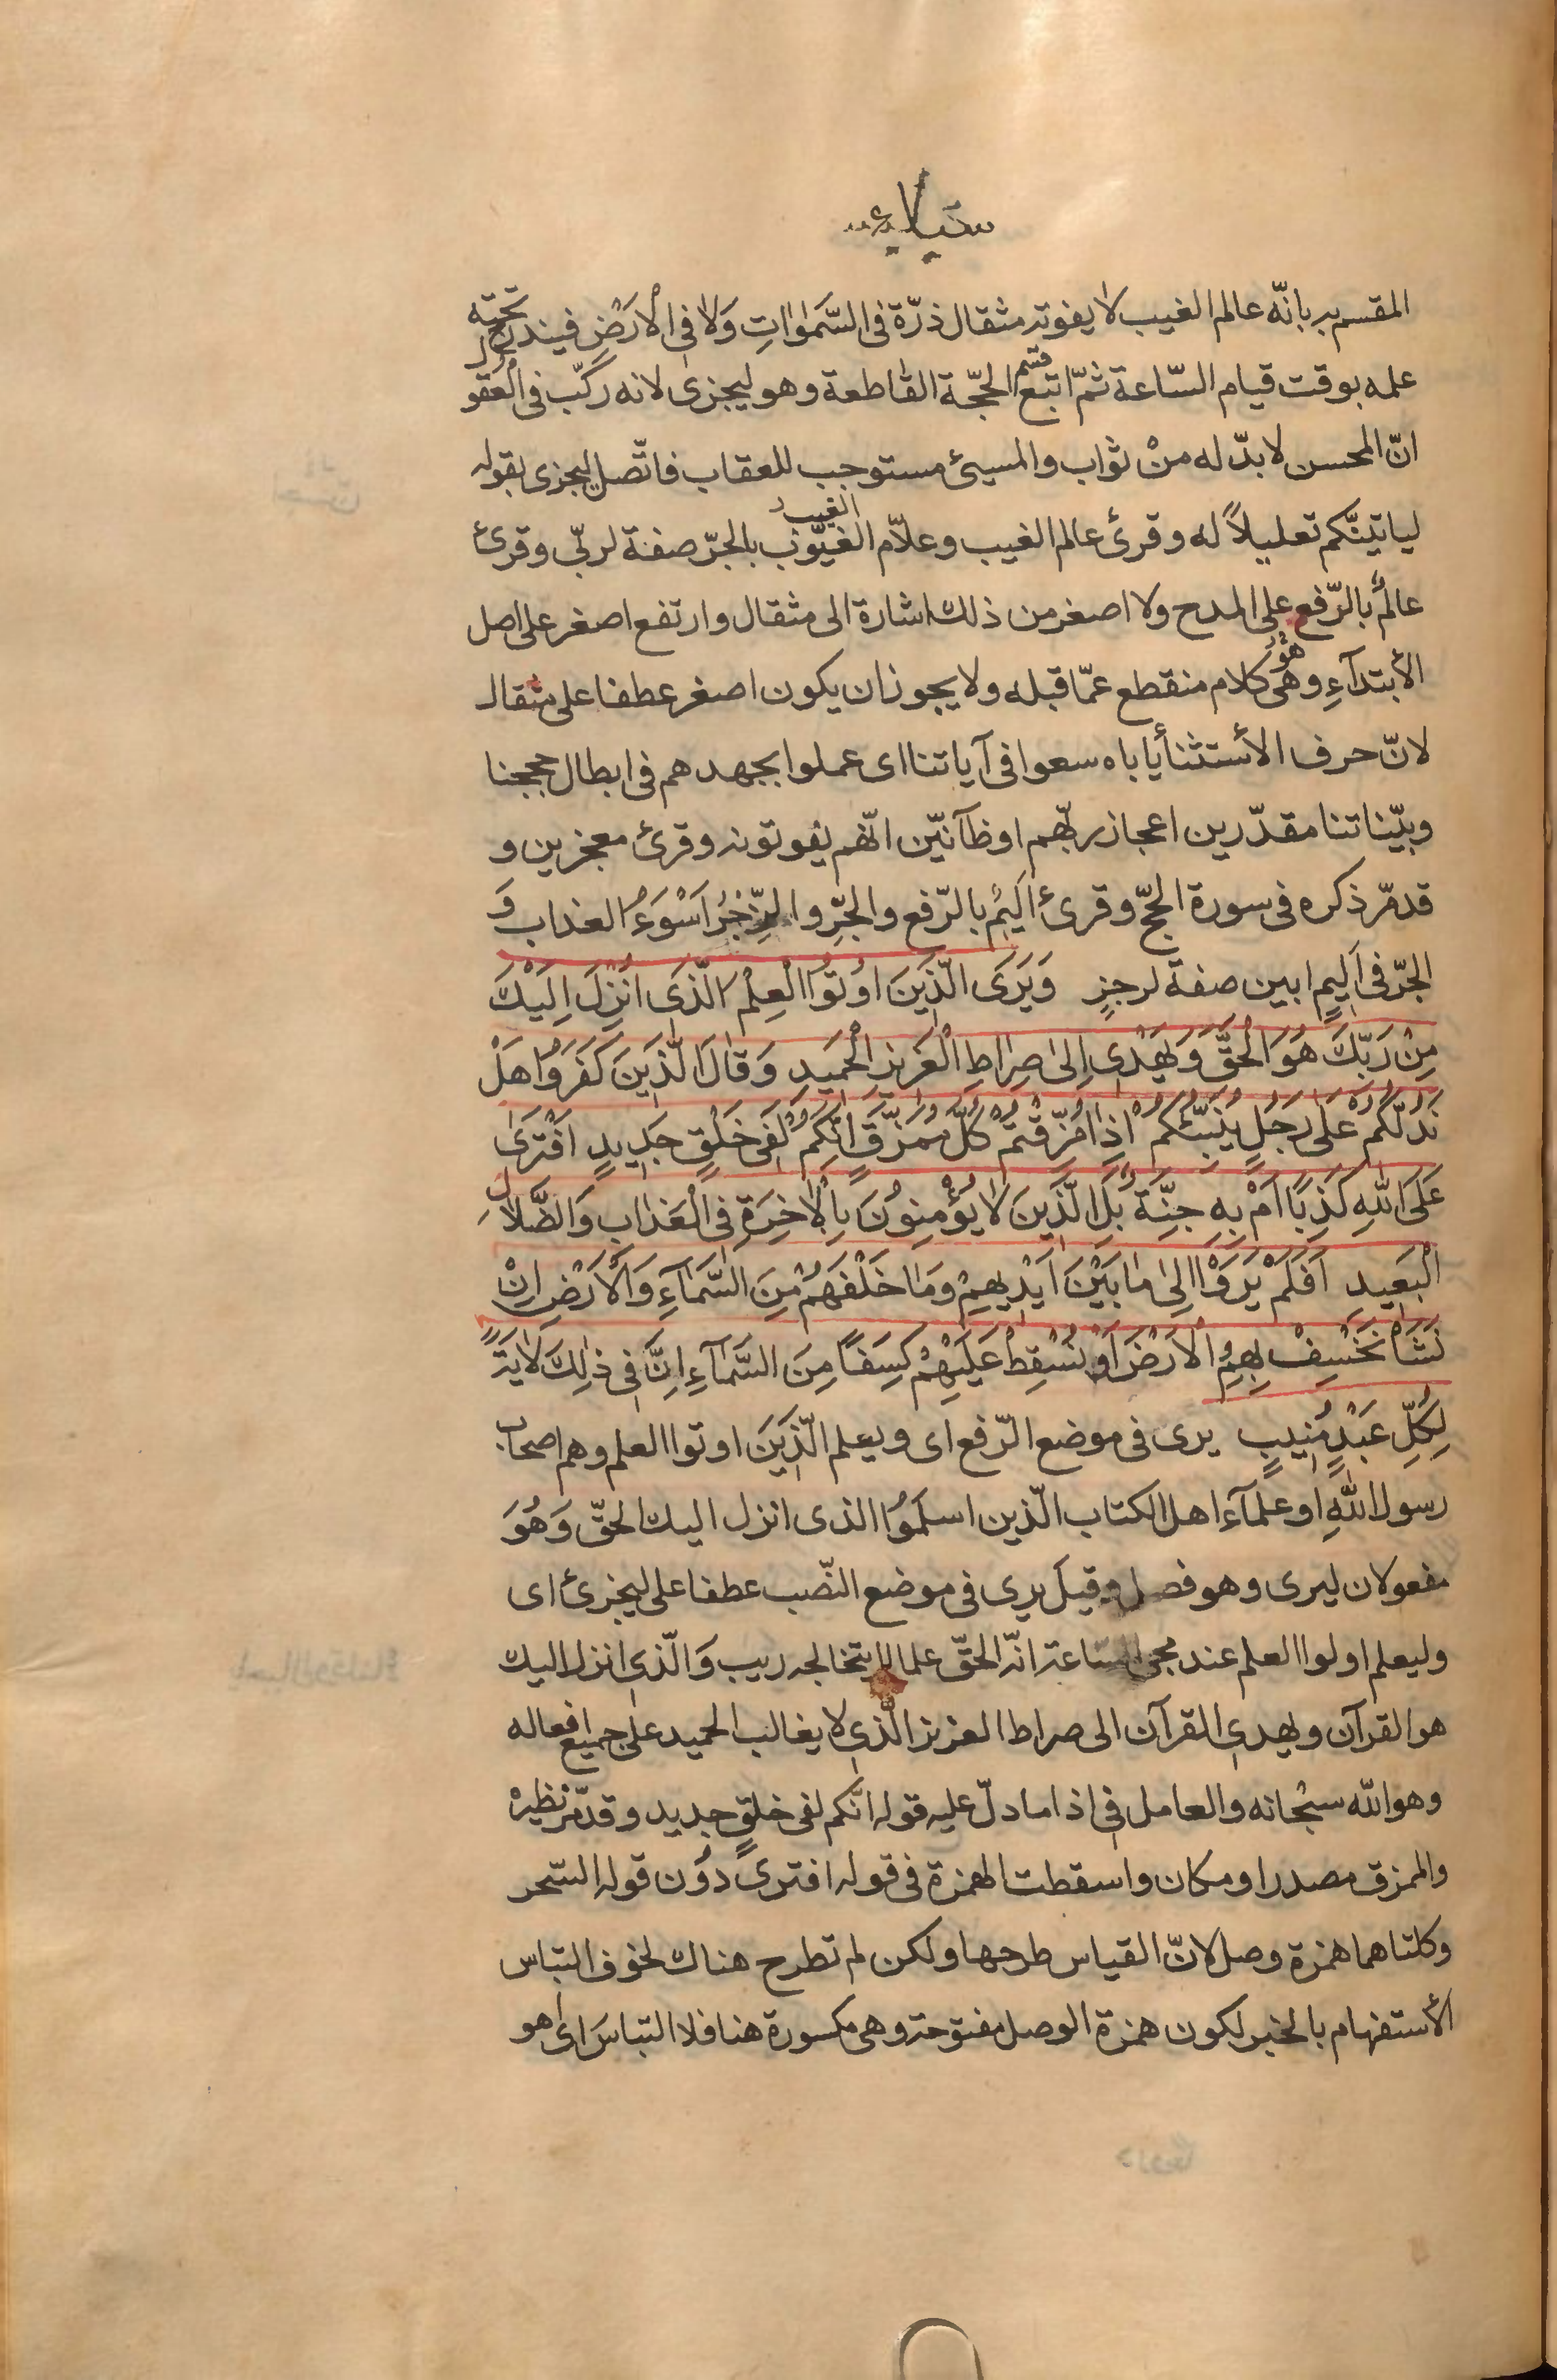 المقسم به بانّه عالم الغيب لا يفوته مثقال ذرّة في السَّمٰوٰاتِ وَلاٰ فِي الْأَرْضِ فيندرج تحته
علمه بوقت قيام السّاعة ثمّ اتبع قسم الحجّة القاطعة وهو ليجزى لانه ركّب في الْعقول
انّ المحسن لا بدّ له منْ ثواب والمسيئ مستوجب للعقاب فاتّصل ليجزى بقوله
لياتينّكم تعليلاً له وقرئ عالم الغيب وعلاّم الغيوب الغيب بالجرّ صفة لربّي وقرئ
عالمُ بالرّفع على المدح ولا اصغر من ذلك اشارة الى مثقال وارتفع اصغر على اصل
الأبتدآءِ وهى هو كلام منقطع عمّا قبله ولا يجوز ان يكون اصغر عطفا على مثقال
لانّ حرف الأستثنأ ياباه سعوا في آياتنا اى عملوا بجهدهم في ابطال حججنا
وبيّناتنا مقدّرين اعجاز ربّهم او ظآنّين انّهم يفوتونه وقرئ معجزين و
قد مرّ ذكره في سورة الحجّ وقرئ اَليمُ بالرّفع والجرِّ والرِّجْزُ اَسْوَءُ العذاب وَ
الجرّ في اَليمٍ ابين صفة لرجزٍ وَيَرَى الَّذِينَ اوُتُوا الْعِلْمَ الَّذى اُنْزِلَ اِلَيْكَ
مِنْ رَبِّكَ هُوَ الْحَقَّ وَيَهْدى اِلىٰ صِراطِ الْعَزيزِ الْحَميدِ وَقٰالَ الَّذينَ كَفَرُوا هَلْ
نَدُلُّكُمْ عَلىٰ رَجُلٍ يُنَبِّئُكُمْ اِذٰا مُزِّقْتُمْ كُلَّ مُمَزَّقٍ اِنَّكُمْ لَفى خَلْقٍ جَديدٍ افْتَرىٰ
عَلَى اللهِ كَذِبًا اَمْ بِهِ جِنَّةٌ بَلِ الَّذينَ لاٰ يُؤْمِنوُنَ بِالْاٰخِرَةِ فِى الْعَذابِ وَالضَّلاٰلِ
الْبَعيدِ اَفَلَمْ يَرَوْا اِلىٰ مٰا بَيْنَ اَيْديهِمْ وَمٰا خَلْفَهُمْ مِنَ السَّمٰآءِ وَالْأَرْضِ اِنْ
نَشَأْ نَخْسِفْ بِهِمُ الْأَرْضَ اَوْ نُسْقِطْ عَلَيْهِمْ كِسَفًا مِنَ السَّمٰآءِ اِنَّ فى ذٰلِكَ لَاٰيَةً
لِكُلِّ عَبْدٍ مُنيبٍ يرى في موضع الرّفع اى ويعلم الَّذينَ اوتوا العلم وهم اصحاب
رسول اللّهِ او علمآء اهل الكتاب الّذين اسلَمُوا الذى انزل اليك الحقّ وَهُوَ
مفعولان ليرى وهو فصل وقيل يرى في موضع النّصب عطفا على ليجزئ اى
وليعلم اولوا العلم عند مجئ السّاعة انّه الحقّ علما لا يتخالجه ريب وَالّذى انزل اليك
هو القرآن ويهدى القرآن الى صراط العزيز الّذى لا يغالب الحميد على جميع افعاله
وهو اللّه سبْحانه والعامل في اذا ما دلّ عليه قوله انّكم لفى خلقٍ جديد وقد مرّ نظيرهُ
والممزق مصدر او مكان واسقطت الهمزة في قوله افترى دوُن قوله السّحر
وكلتاهما همزة وصل لانّ القياس طرحها ولكن لم تطرح هناك لخوف التباس
الأستفهام بالخبر لكون همزة الوصل مفتوحة وهى مكسورة هنا فلا التباسَ اى هو